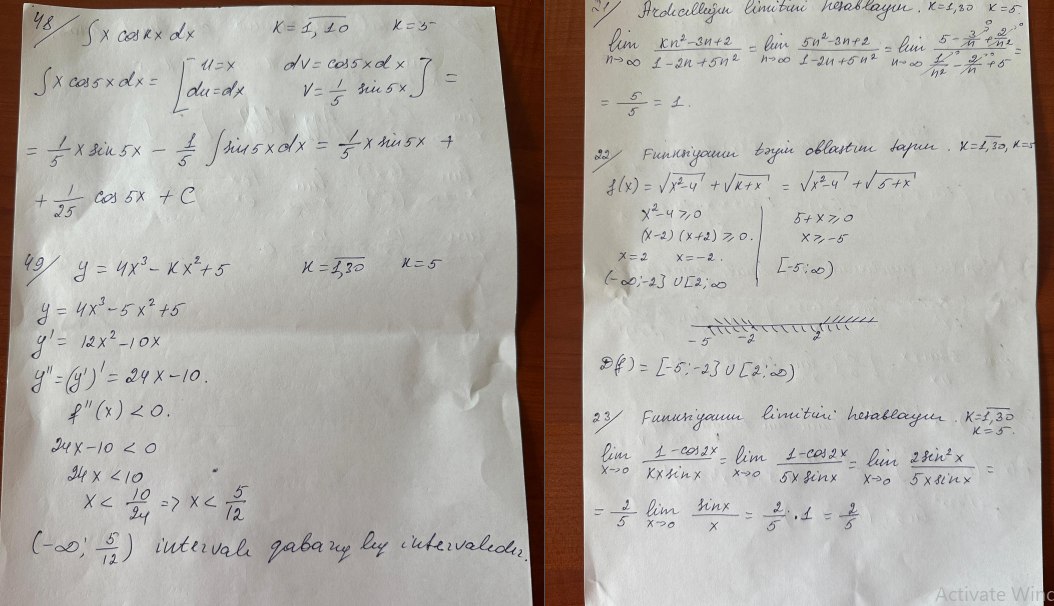 48/ ∫ x cos kx dx   K = 1,10   K = 5
∫ x cos 5x dx = [ u = x   dv = cos 5x dx
du = dx   v = 1/5 sin 5x ] =
= 1/5 x sin 5x - 1/5 ∫ sin 5x dx = 1/5 x sin 5x +
+ 1/25 cos 5x + C
49/ y = 4x³ - Kx² + 5   K = 1,30   K = 5
y = 4x³ - 5x² + 5
y' = 12x² - 10x
y'' = (y')' = 24x - 10.
f''(x) < 0.
24x - 10 < 0
24x < 10
x < 10/24 => x < 5/12
(-∞; 5/12) intervalı qabarıqlıq intervalıdır.
21/ Ardıcıllığın limitini hesablayın. K = 1,30   K = 5
lim n→∞ (Kn² - 3n + 2)/(1 - 2n + 5n²) = lim n→∞ (5n² - 3n + 2)/(1 - 2n + 5n²) = lim n→∞ (5 - 3/n + 2/n²)/(1/n² - 2/n + 5) =
= 5/5 = 1.
22/ Funksiyanın təyin oblastını tapın. K = 1,30, K = 5
f(x) = √(x² - 4) + √(K + x) = √(x² - 4) + √(5 + x)
x² - 4 ≥ 0   5 + x ≥ 0
(x - 2)(x + 2) ≥ 0.   x ≥ -5
x = 2   x = -2.   [-5; ∞)
(-∞; -2] ∪ [2; ∞
-5   -2   2
D(f) = [-5; -2] ∪ [2; ∞)
23/ Funksiyanın limitini hesablayın. K = 1,30
K = 5.
lim x→0 (1 - cos 2x)/(Kx sin x) = lim x→0 (1 - cos 2x)/(5x sin x) = lim x→0 (2 sin² x)/(5x sin x) =
= 2/5 lim x→0 sin x/x = 2/5 · 1 = 2/5
Activate Winc